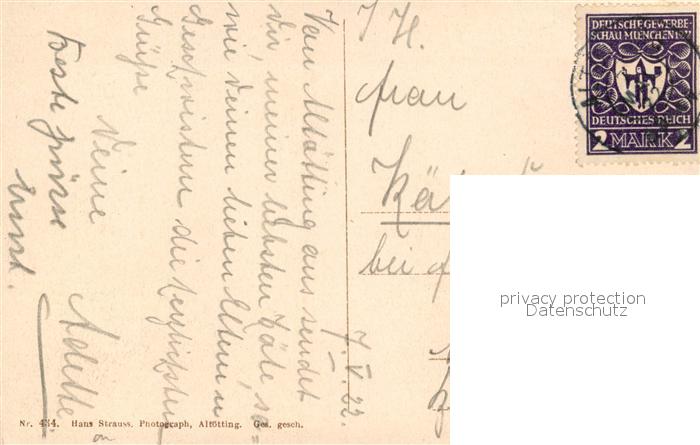 Von Altötting aus sendet
Dir, meiner liebsten Käte, so=
wie Deinen lieben Eltern u.
Geschwistern die herzlichsten
Grüße
Deine
Adette.
Beste Grüsse
Ernst.
7. V. 22.
I. H.
Frau
bei
DEUTSCHE GEWERBE-
SCHAU MUENCHEN 1922
DEUTSCHES REICH
2 MARK 2
privacy protection
Datenschutz
Nr. 434. Hans Strauss, Photograph, Altötting. Ges. gesch.